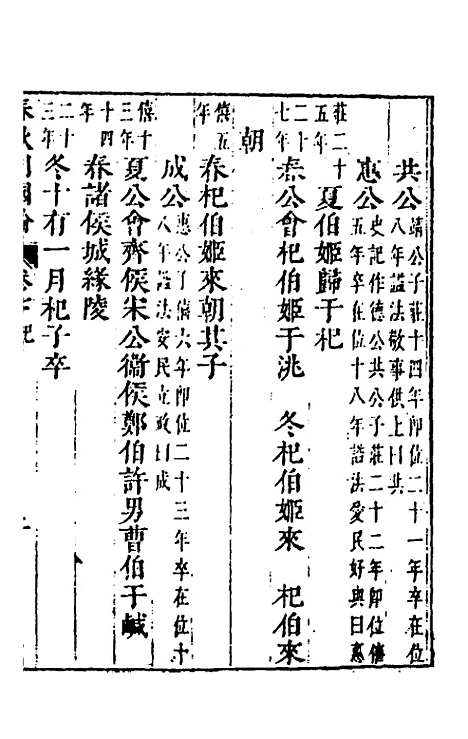 共公靖公子莊十四年即位二十一年卒在位
八年諡法敬事供上曰共
惠公史記作德公共公子莊二十二年即位僖
五年卒在位十八年諡法愛民好與曰惠
莊二十五年 夏伯姬歸于杞
二十七年 春公會杞伯姬于洮 冬杞伯姬來 杞伯來
朝
僖五年 春杞伯姬來朝其子
成公惠公子僖六年即位二十三年卒在位十
八年諡法安民立政曰成
僖十三年 夏公會齊侯宋公衞侯鄭伯許男曹伯于鹹
十四年 春諸侯城緣陵
二十三年 冬十有一月杞子卒